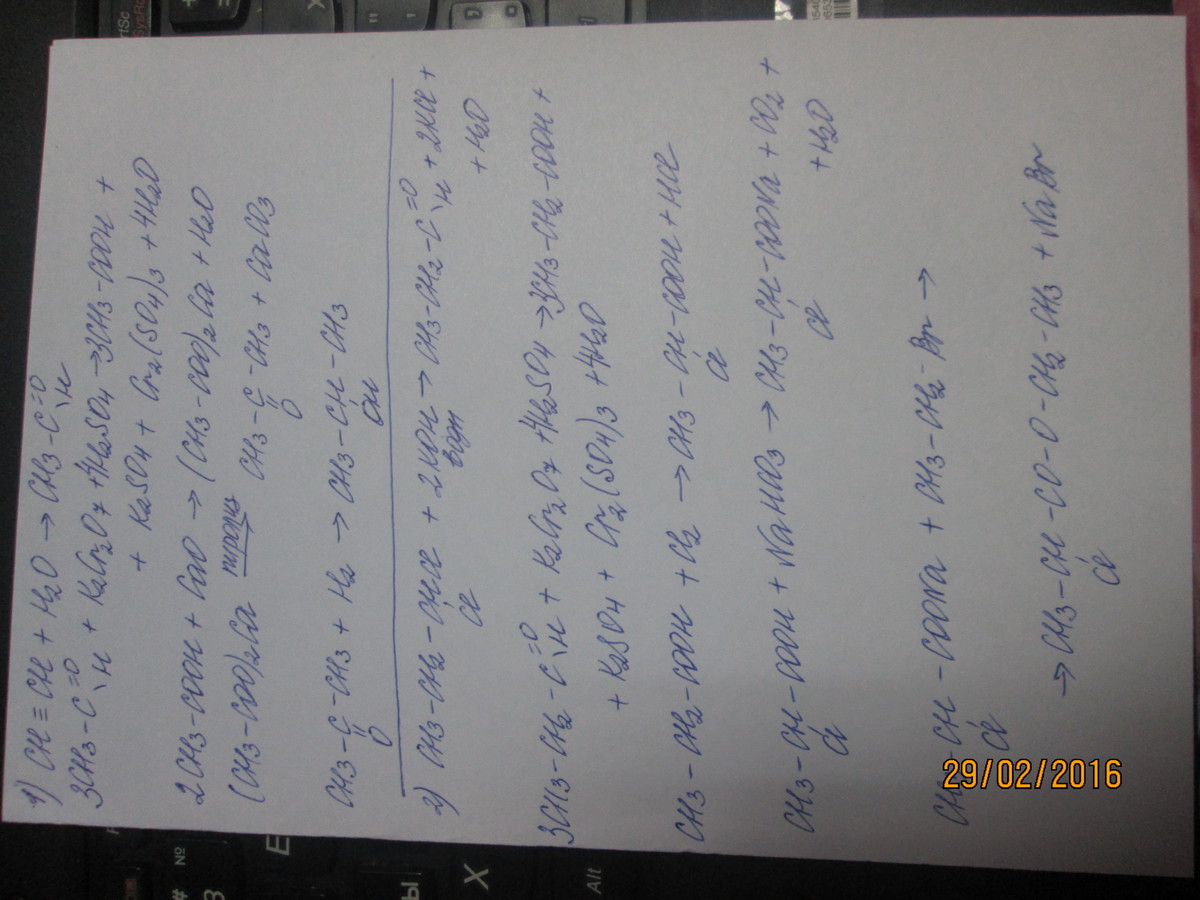 1) CH≡CH + H2O → CH3-C=O
\H
3CH3-C=O
\H + K2Cr2O7 + 4H2SO4 → 3CH3-COOH +
+ K2SO4 + Cr2(SO4)3 + 4H2O
2CH3-COOH + CaO → (CH3-COO)2Ca + H2O
(CH3-COO)2Ca пиролиз → CH3-C-CH3 + CaCO3
O
CH3-C-CH3 + H2 → CH3-CH-CH3
O OH
2) CH3-CH2-CHCl + 2KOH → CH3-CH2-C=O
\H + 2KCl +
Cl водн + H2O
3CH3-CH2-C=O
\H + K2Cr2O7 + 4H2SO4 → 3CH3-CH2-COOH +
+ K2SO4 + Cr2(SO4)3 + 4H2O
CH3-CH2-COOH + Cl2 → CH3-CH-COOH + HCl
Cl
CH3-CH-COOH + NaHCO3 → CH3-CH-COONa + CO2 +
Cl Cl + H2O
CH3-CH-COONa + CH3-CH2-Br →
Cl
→ CH3-CH-CO-O-CH2-CH3 + NaBr
Cl
29/02/2016
№
#
3
E
Ы
X
Alt